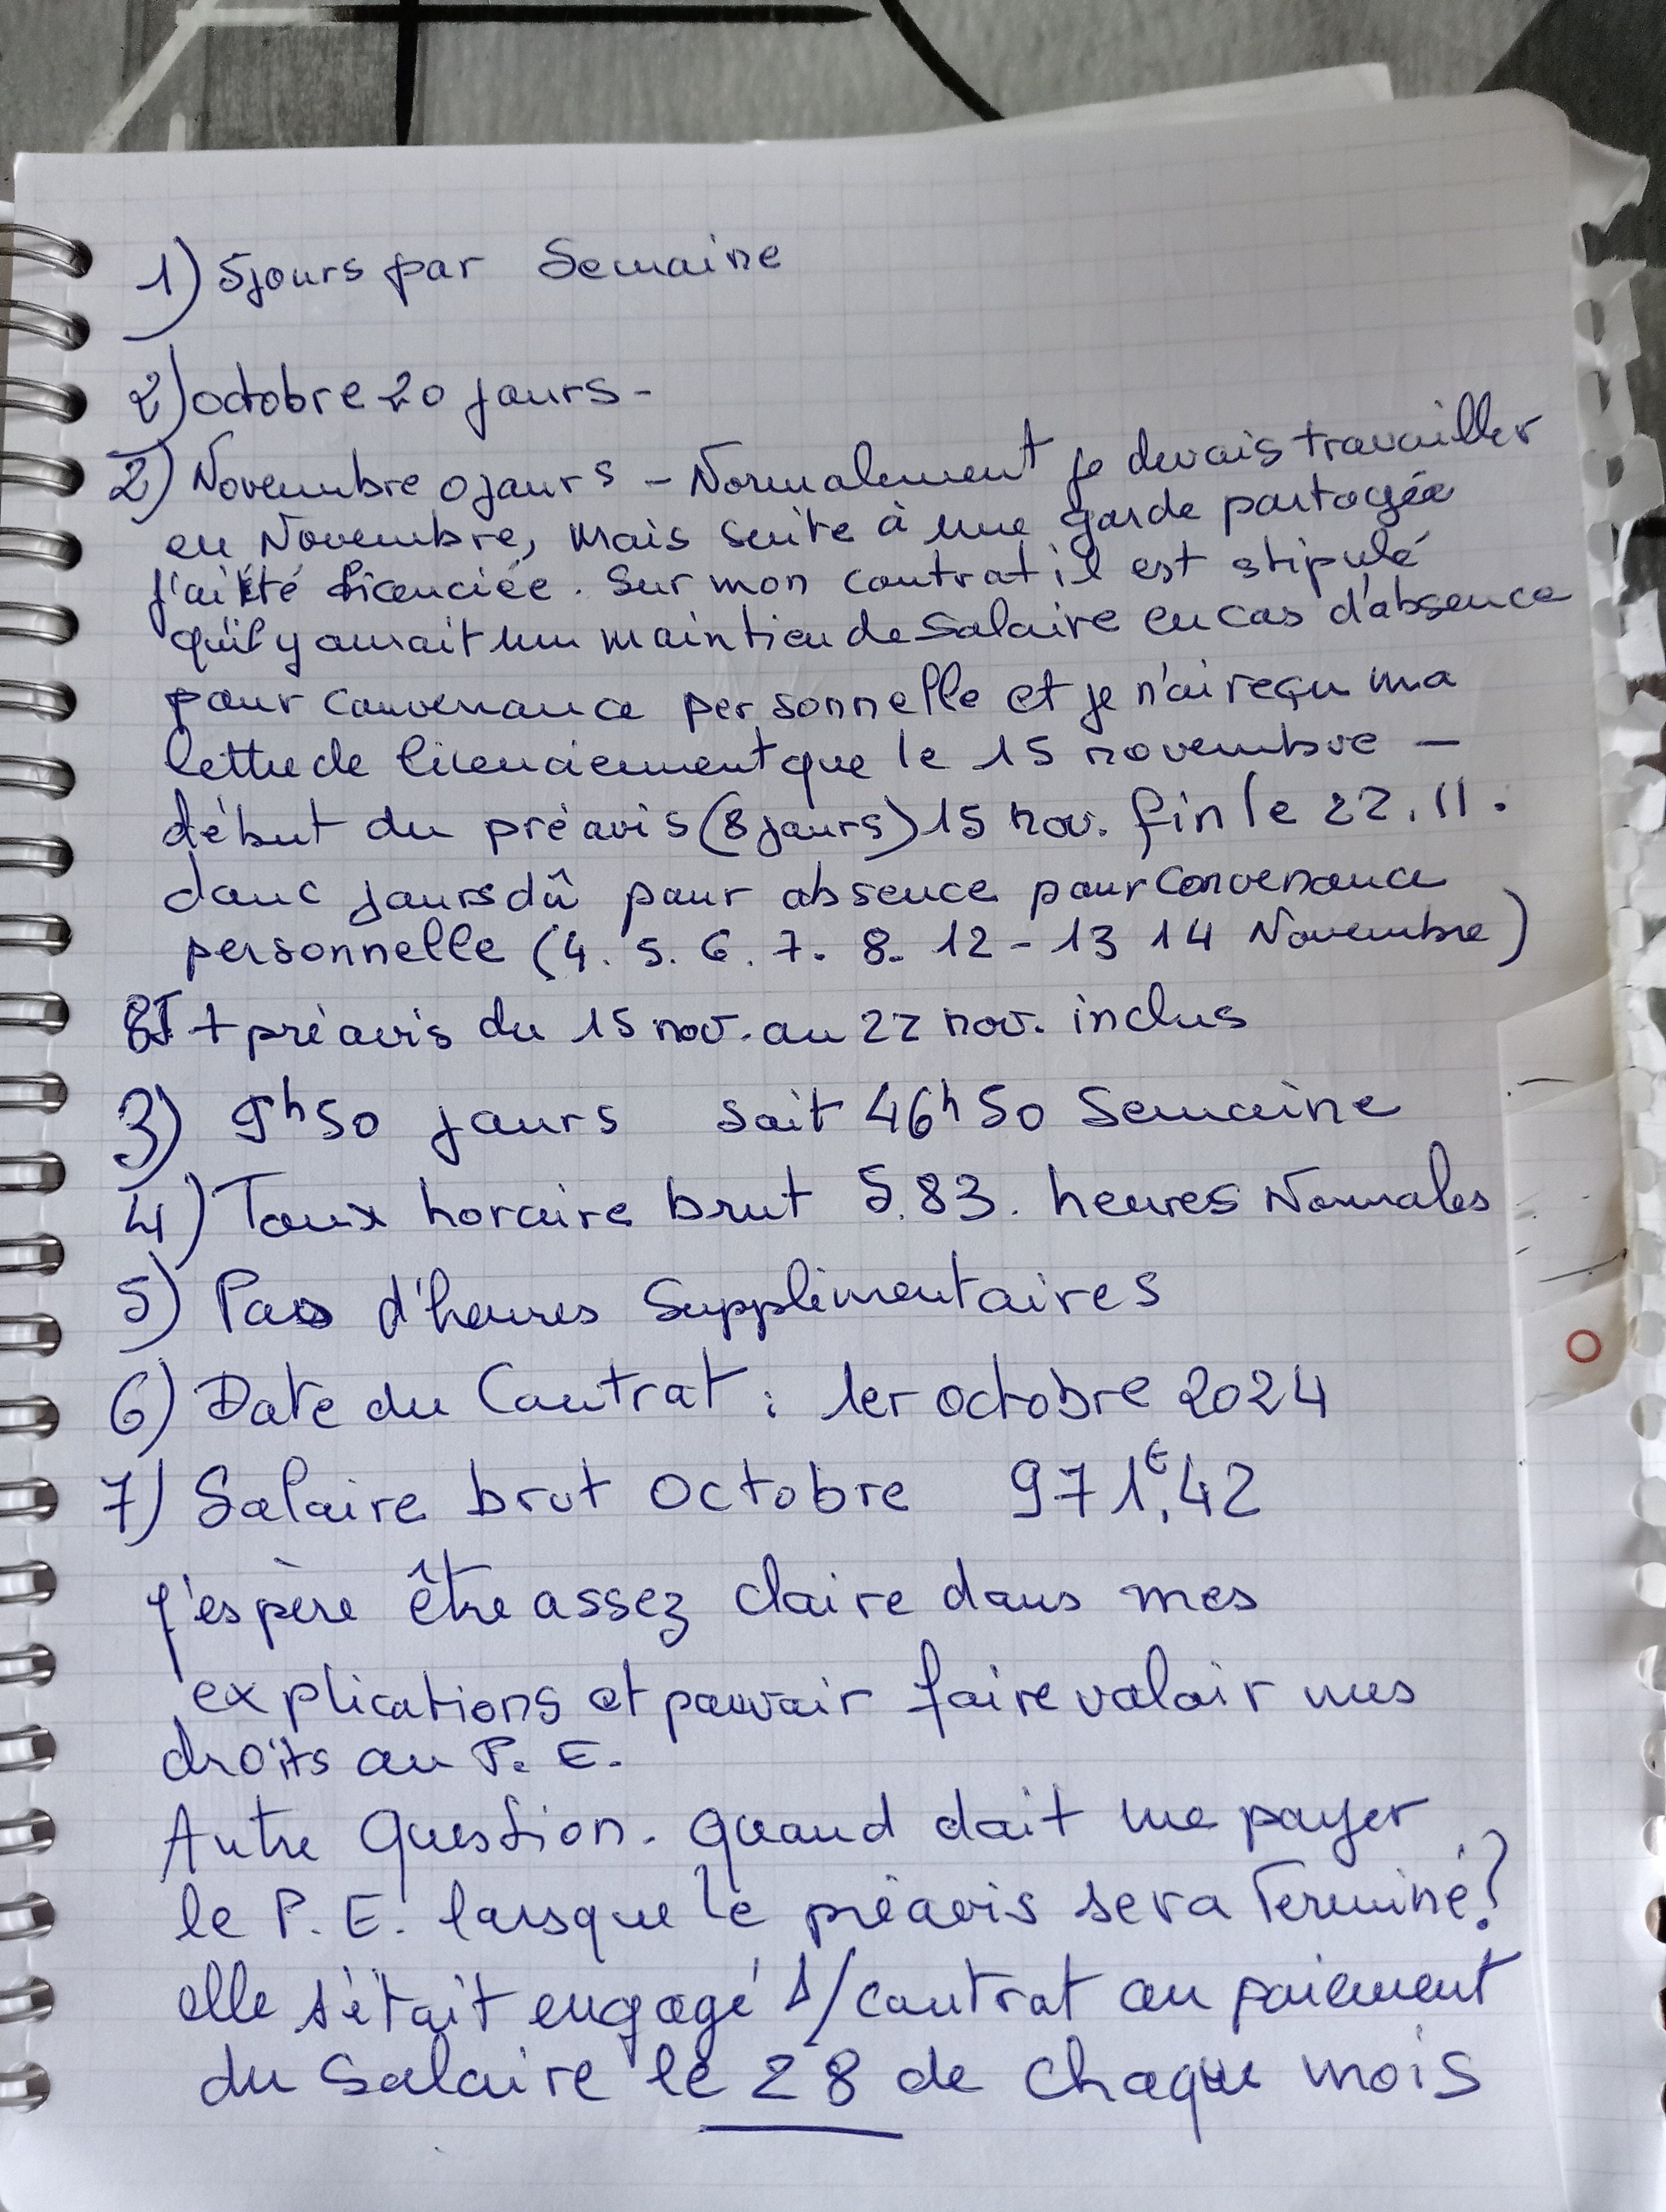 1) 5jours par Semaine
2) octobre 20 jours -
2) Novembre 0 jours - Normalement je devais travailler
en Novembre, mais suite à une garde partagée
j'ai été licenciée. Sur mon contrat il est stipulé
qu'il y aurait un maintien de Salaire en cas d'absence
pour convenance personnelle et je n'ai reçu ma
lettre de licenciement que le 15 novembre -
début du préavis (8 jours) 15 nov. fin le 22.11.
donc jours dû pour absence pour convenance
personnelle (4. 5. 6. 7. 8. 12 - 13 14 Novembre)
8J + préavis du 15 nov. au 22 nov. inclus
3) 9h50 jours soit 46h50 Semaine
4) Taux horaire brut 5.83. heures Normales
5) Pas d'heures Supplémentaires
6) Date du Contrat : 1er octobre 2024
7) Salaire brut octobre 971€,42
j'espère être assez claire dans mes
explications et pouvoir faire valoir mes
droits au P. E.
Autre Question. Quand doit me payer
le P. E. lorsque le préavis sera Terminé?
elle s'était engagé s/contrat au paiement
du Salaire le 28 de chaque mois